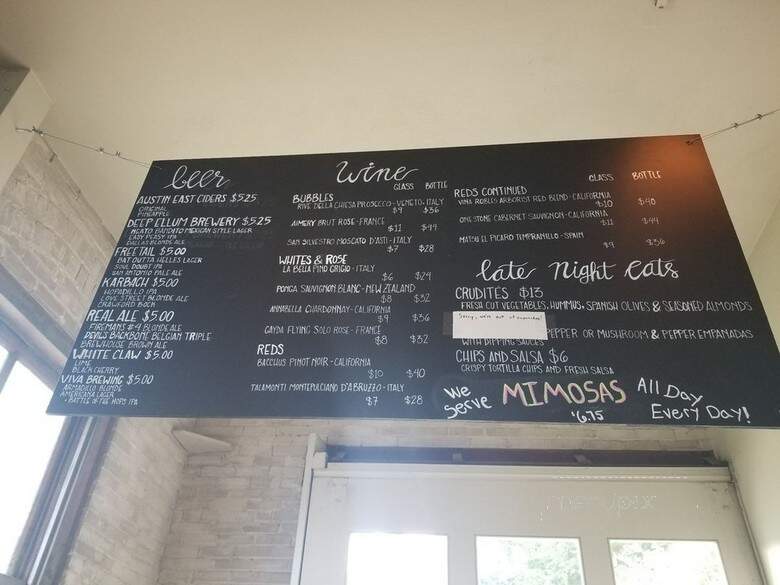 beer
AUSTIN EAST CIDERS $5.25
ORIGINAL
PINEAPPLE
DEEP ELLUM BREWERY $5.25
NEATO BANDITO MEXICAN STYLE LAGER
EASY PEASY IPA
DALLAS BLONDE ALE
FREETAIL $5.00
BAT OUTTA HELLES LAGER
SOUL DOUBT IPA
SAN ANTONIO PALE ALE
KARBACH $5.00
HOPADILLO IPA
LOVE STREET BLONDE ALE
CRAWFORD BOCK
REAL ALE $5.00
FIREMANS #4 BLONDE ALE
DEVIL'S BACKBONE BELGIAN TRIPLE
BREWHOUSE BROWN ALE
WHITE CLAW $5.00
LIME
BLACK CHERRY
VIVA BREWING $5.00
ARMADILLO BLONDE
AMERICANA LAGER
BATTLE OF THE HOPS IPA
wine
GLASS BOTTLE
BUBBLES
RIVE DELLA CHIESA PROSECCO - VENETO - ITALY
$9 $36
AIMERY BRUT ROSE - FRANCE
$11 $44
SAN SILVESTRO MOSCATO D'ASTI - ITALY
$7 $28
WHITES & ROSE
LA BELLA PINO GRIGIO - ITALY
$6 $24
PONGA SAUVIGNON BLANC - NEW ZEALAND
$8 $32
ANNABELLA CHARDONNAY - CALIFORNIA
$9 $36
GAYDA FLYING SOLO ROSE - FRANCE
$8 $32
REDS
BACCHUS PINOT NOIR - CALIFORNIA
$10 $40
TALAMONTI MONTEPULCIANO D'ABRUZZO - ITALY
$7 $28
GLASS BOTTLE
REDS CONTINUED
VINA ROBLES ARBORIST RED BLEND - CALIFORNIA
$10 $40
ONE STONE CABERNET SAUVIGNON - CALIFORNIA
$11 $44
MATSU EL PICARO TEMPRANILLO - SPAIN
$9 $36
late night eats
CRUDITES $13
FRESH CUT VEGETABLES, HUMMUS, SPANISH OLIVES & SEASONED ALMONDS
Sorry, we're out of empanadas!
PEPPER OR MUSHROOM & PEPPER EMPANADAS
WITH DIPPING SAUCES
CHIPS AND SALSA $6
CRISPY TORTILLA CHIPS AND FRESH SALSA
We Serve MIMOSAS All Day Every Day!
$6.75